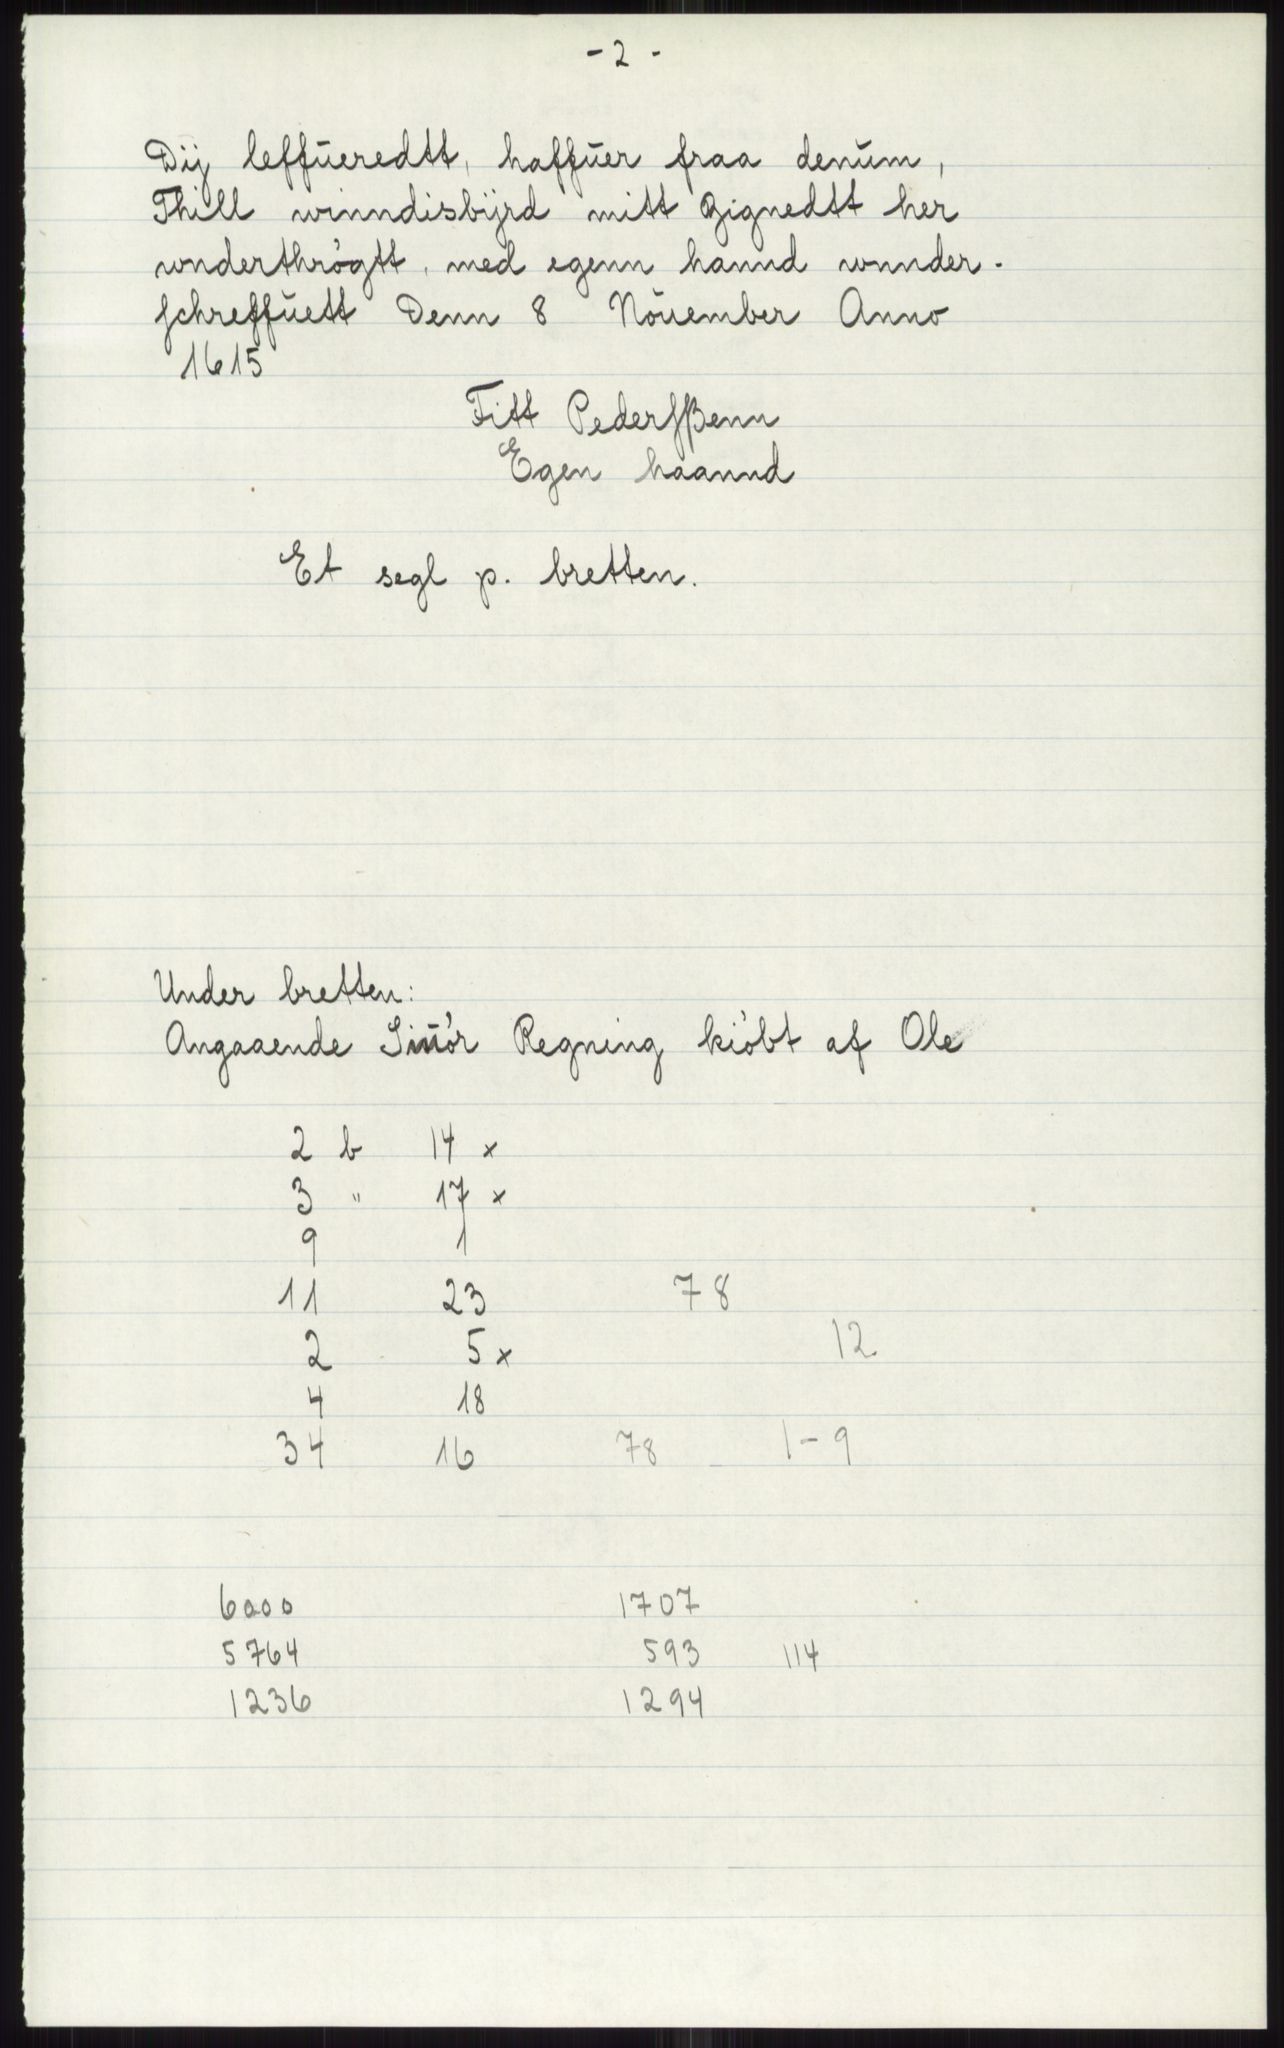 - 2 -
Dij leffūeredtt, haffūer fraa denūm,
Thill winndisbijrd mitt Zignedtt her
wnderthrögtt, med egenn hannd wnnder-
schreffūett Denn 8 Nouember Anno
1615
Fitt Pederssßenn
Egen haannd
Et segl p. bretten.
Under bretten:
Angaaende Regning kiöbt af Ole
2 b 14 x
3 " 17 x
9 1
11 23 78
2 5 x 12
4 18
34 16 78 1-9
6000 1707
5764 593 114
1236 1294